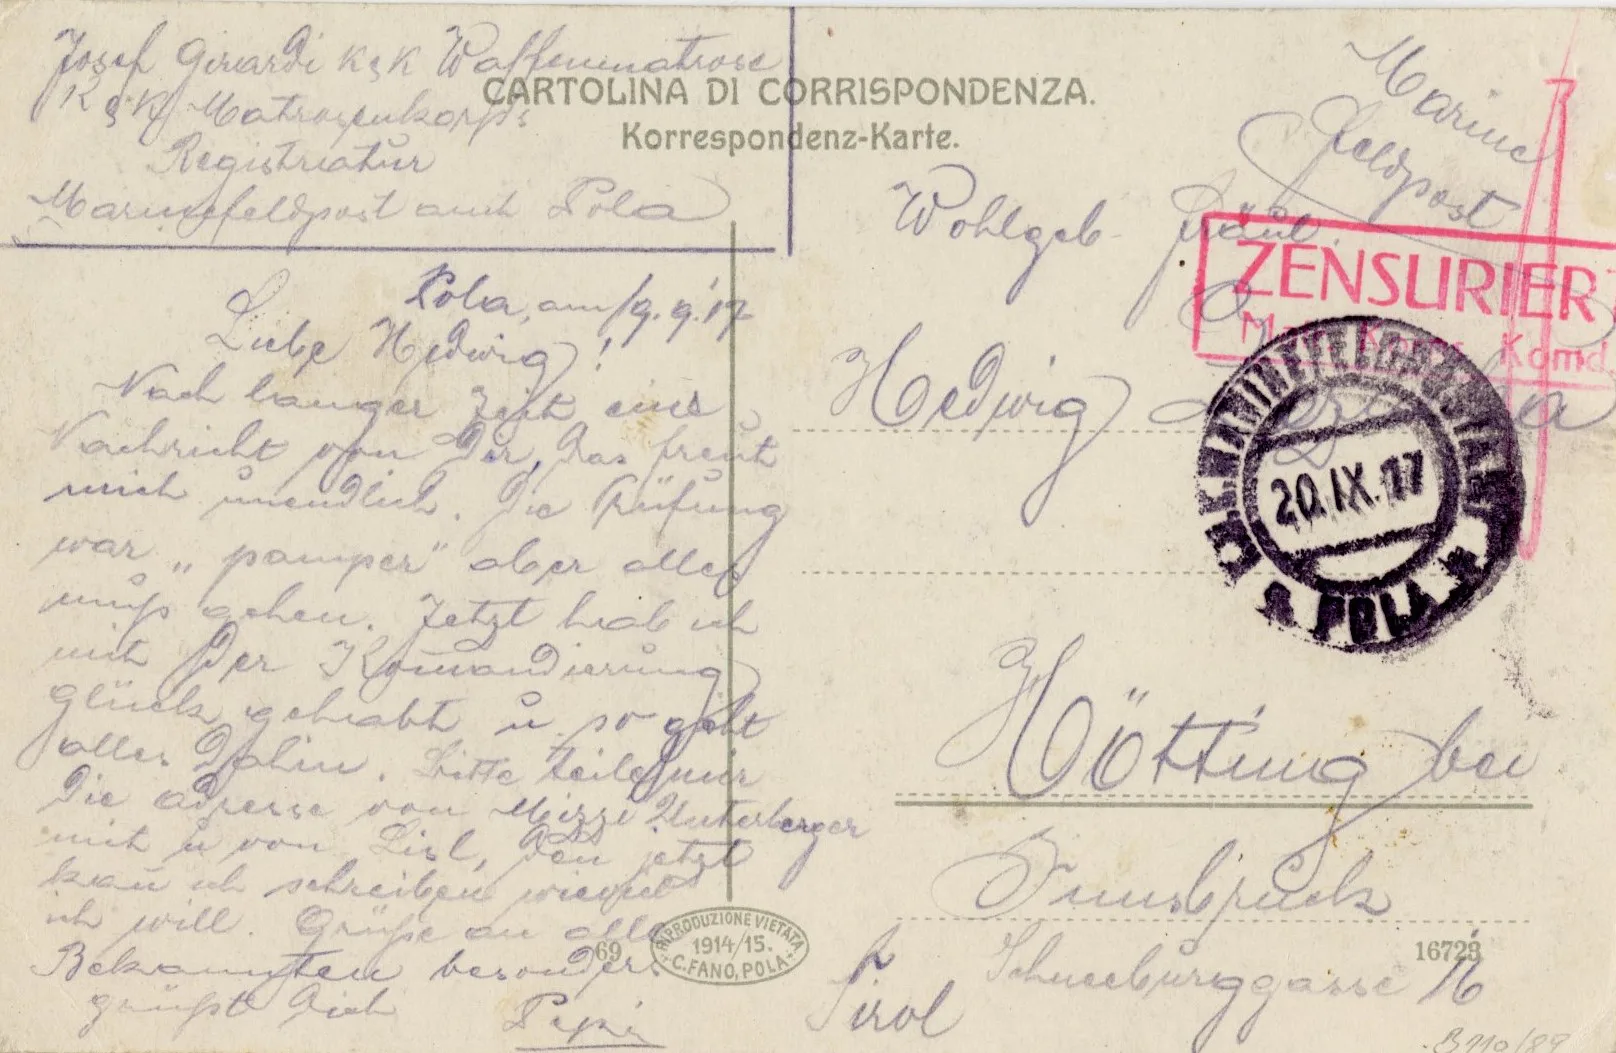 Josef Girardi K & K Waffenmatrose
K & K Matrosenkorps
Registratur
Marinefeldpost amt Pola
CARTOLINA DI CORRISPONDENZA.
Korrespondenz-Karte.
Marine
Feldpost
Pola, am 19. 9. 17
Liebe Hedwig!
Nach langer Zeit eine
Nachricht von Dir, das freut
mich unendlich. Die Prüfung
war „pamper" aber alles
muß gehen. Jetzt hab ich
mit der Komandierung
Glück gehabt u. so geht
alles dahin. Bitte teile mir
die adresse von Mizzi Unterberger
mit u von Lisl, den jetzt
kan ich schreiben wieviel
ich will. Grüße an alle
Bekannten besonders
grüßt Dich
Pepi
Wohlgeb. Fräul.
Hedwig
Hötting bei
Innsbruck
Schneeburggasse 16
Tirol
ZENSURIERT
Mat. Korps Komdo.
K.u.K. MARINEFELDPOSTAMT
20.IX.17
POLA
RIPRODUZIONE VIETATA
1914/15.
C. FANO, POLA
69
16723
B 710/89